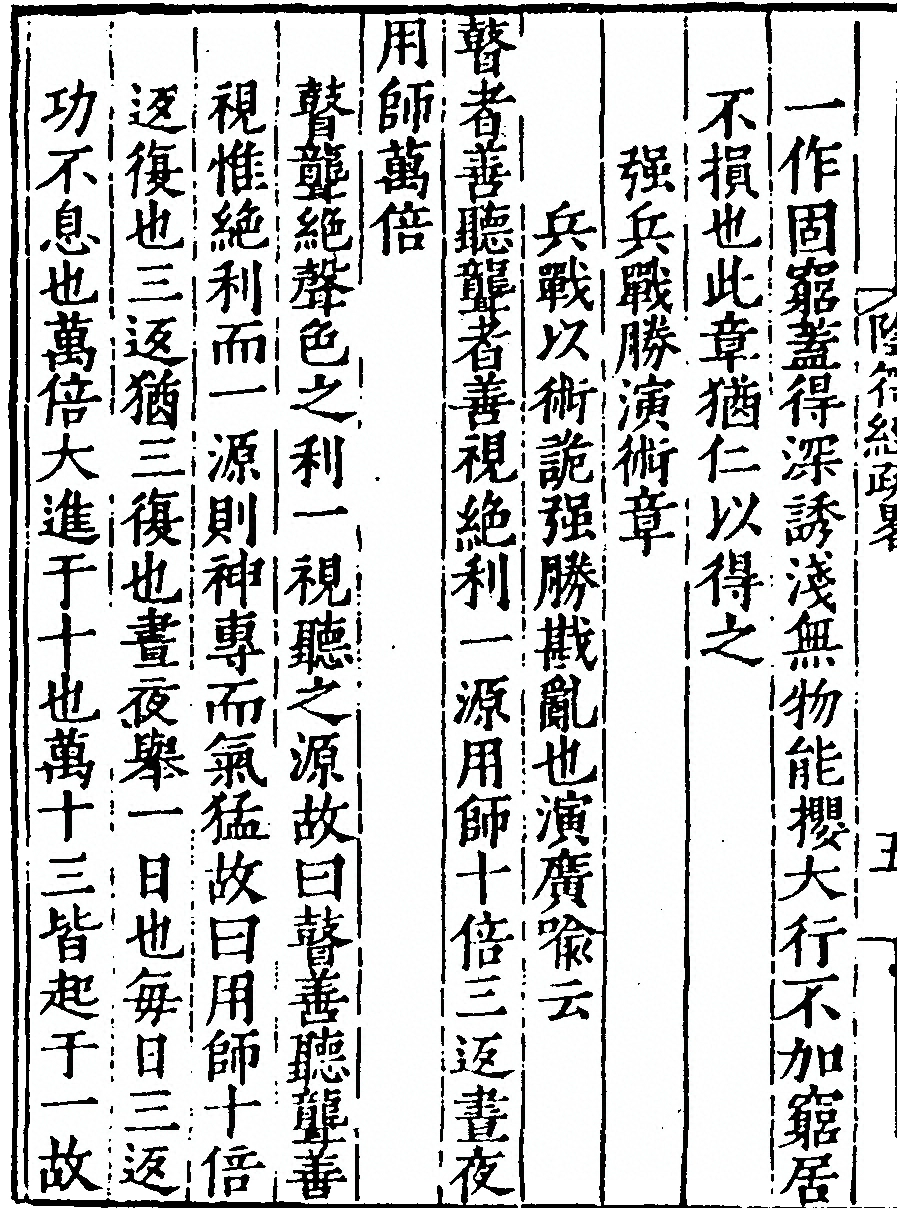 陰符經疏畧
五
一作固窮蓋得深誘淺無物能攖大行不加窮居
不損也此章猶仁以得之
强兵戰勝演術章
兵戰以術詭强勝戡亂也演廣喩云
瞽者善聽聾者善視絶利一源用師十倍三返晝夜
用師萬倍
瞽聾絶聲色之利一視聽之源故曰瞽善聽聾善
視惟絶利而一源則神專而氣猛故曰用師十倍
返復也三返猶三復也晝夜舉一日也每日三返
功不息也萬倍大進于十也萬十三皆起于一故